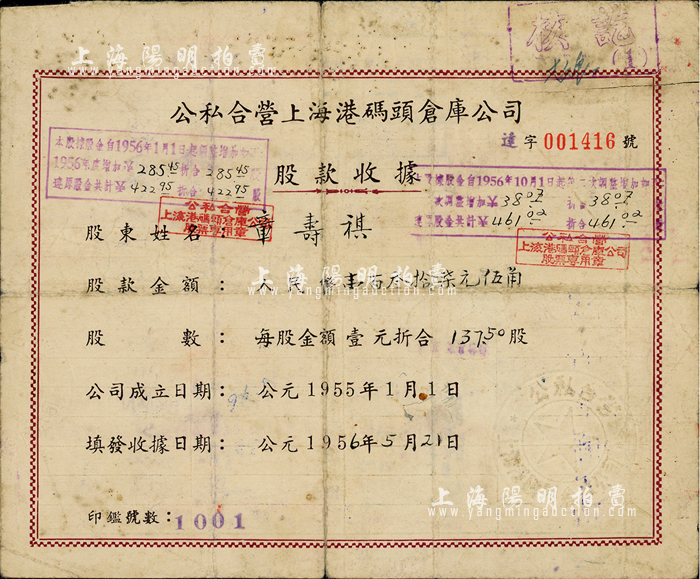 上海陽明拍賣
www.yangmingauction.com
龍
(1)
公私合營上海港碼頭倉庫公司
字 001416 號
股款收據
本股據股金自1956年1月1日起
1956年度增加¥285.45折合285.45股
連原股金共計¥422.95折合422.95股
股據股金自1956年10月1日起
¥38.07 38.07
連原股金共計¥461.02折合461.02
公私合營
上海港碼頭倉庫公司
股票專用章
公私合營
上海港碼頭倉庫公司
股票專用章
股東姓名: 章壽祺
股款金額: 人民幣壹百叁拾柒元伍角
股數: 每股金額壹元折合 137.50 股
公司成立日期: 公元1955年1月1日
填發收據日期: 公元1956年5月21日
印鑑號數: 1001
上海陽明拍賣
www.yangmingauction.com